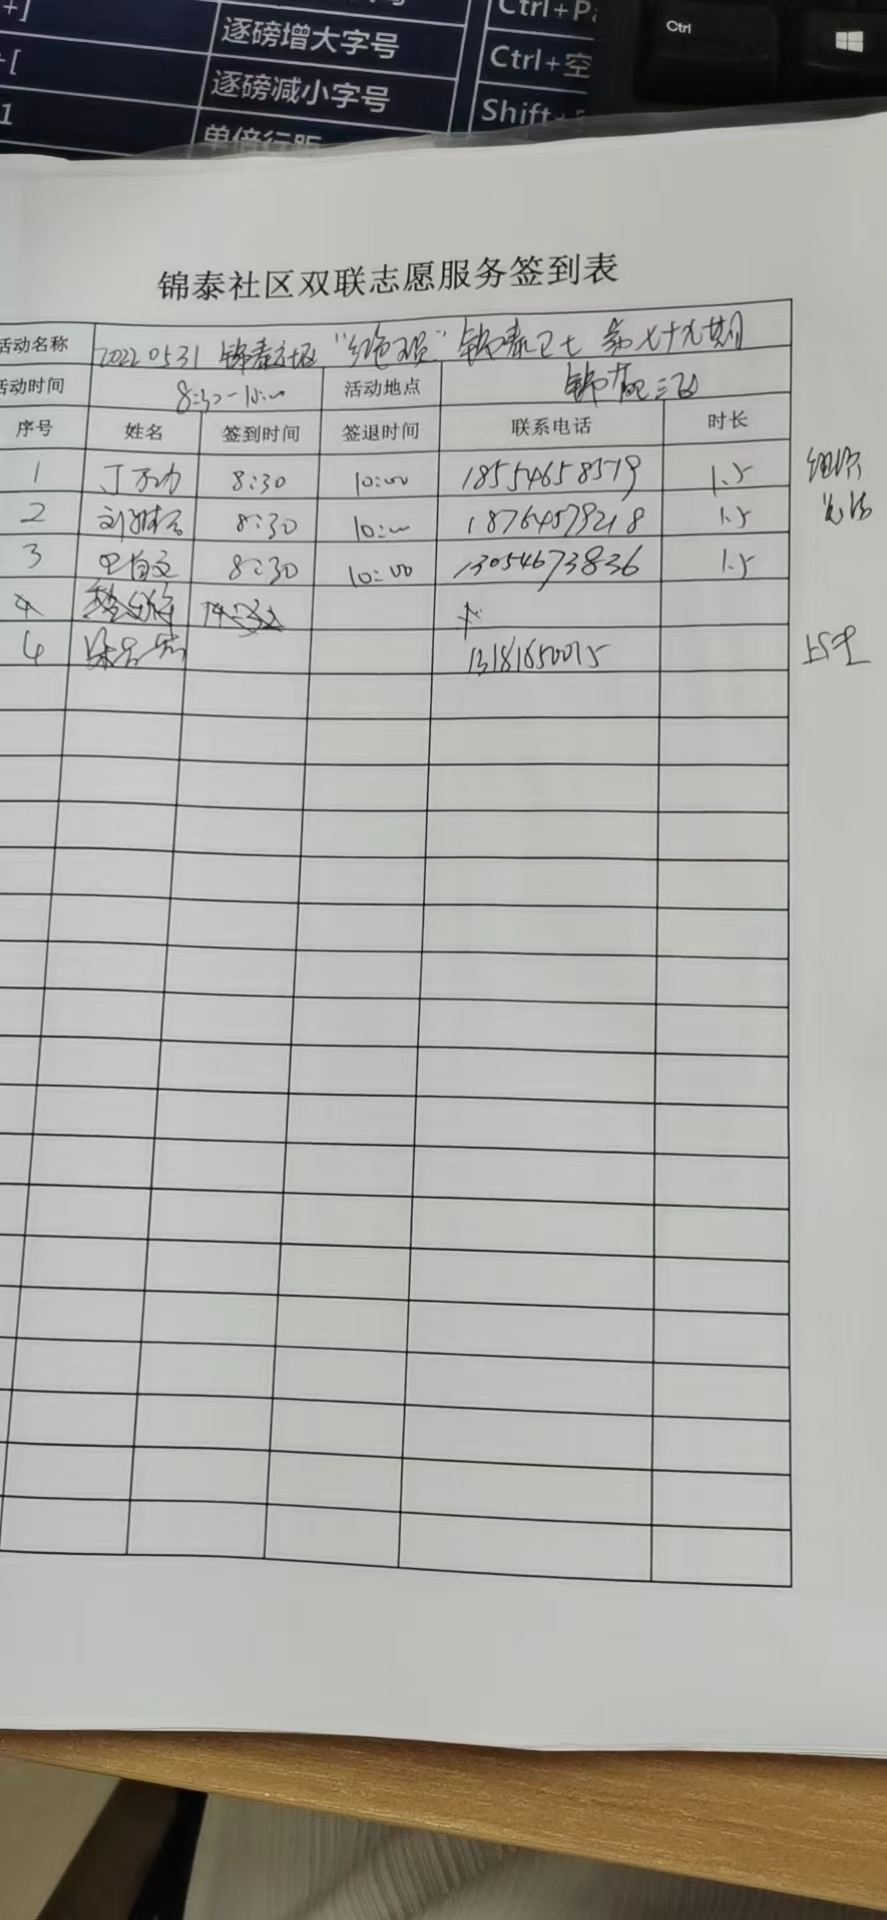 +]
逐磅增大字号
Ctrl+Pa
Ctrl
+[
逐磅减小字号
Ctrl+空
1
单倍行距
Shift+
锦泰社区双联志愿服务签到表
活动名称 20220531 锦泰社区 "红色双员" 锦泰卫士 第七十九期
活动时间 8:30-10:00 活动地点 锦泰三区
序号 姓名 签到时间 签退时间 联系电话 时长
1 丁万功 8:30 10:00 18554658579 1.5
2 刘 8:30 10:00 18764579218 1.5
3 巴自文 8:30 10:00 13054673836 1.5
4
4 13181850015
组织